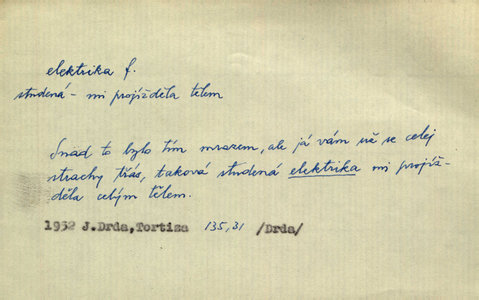 elektrika f.
studená - mi projížděla tělem
Snad to bylo tím mrazem, ale já vám už se celej
strachy třás, taková studená elektrika mi projíž-
děla celým tělem.
1952 J.Drda,Tortiza 135,31 /Drda/